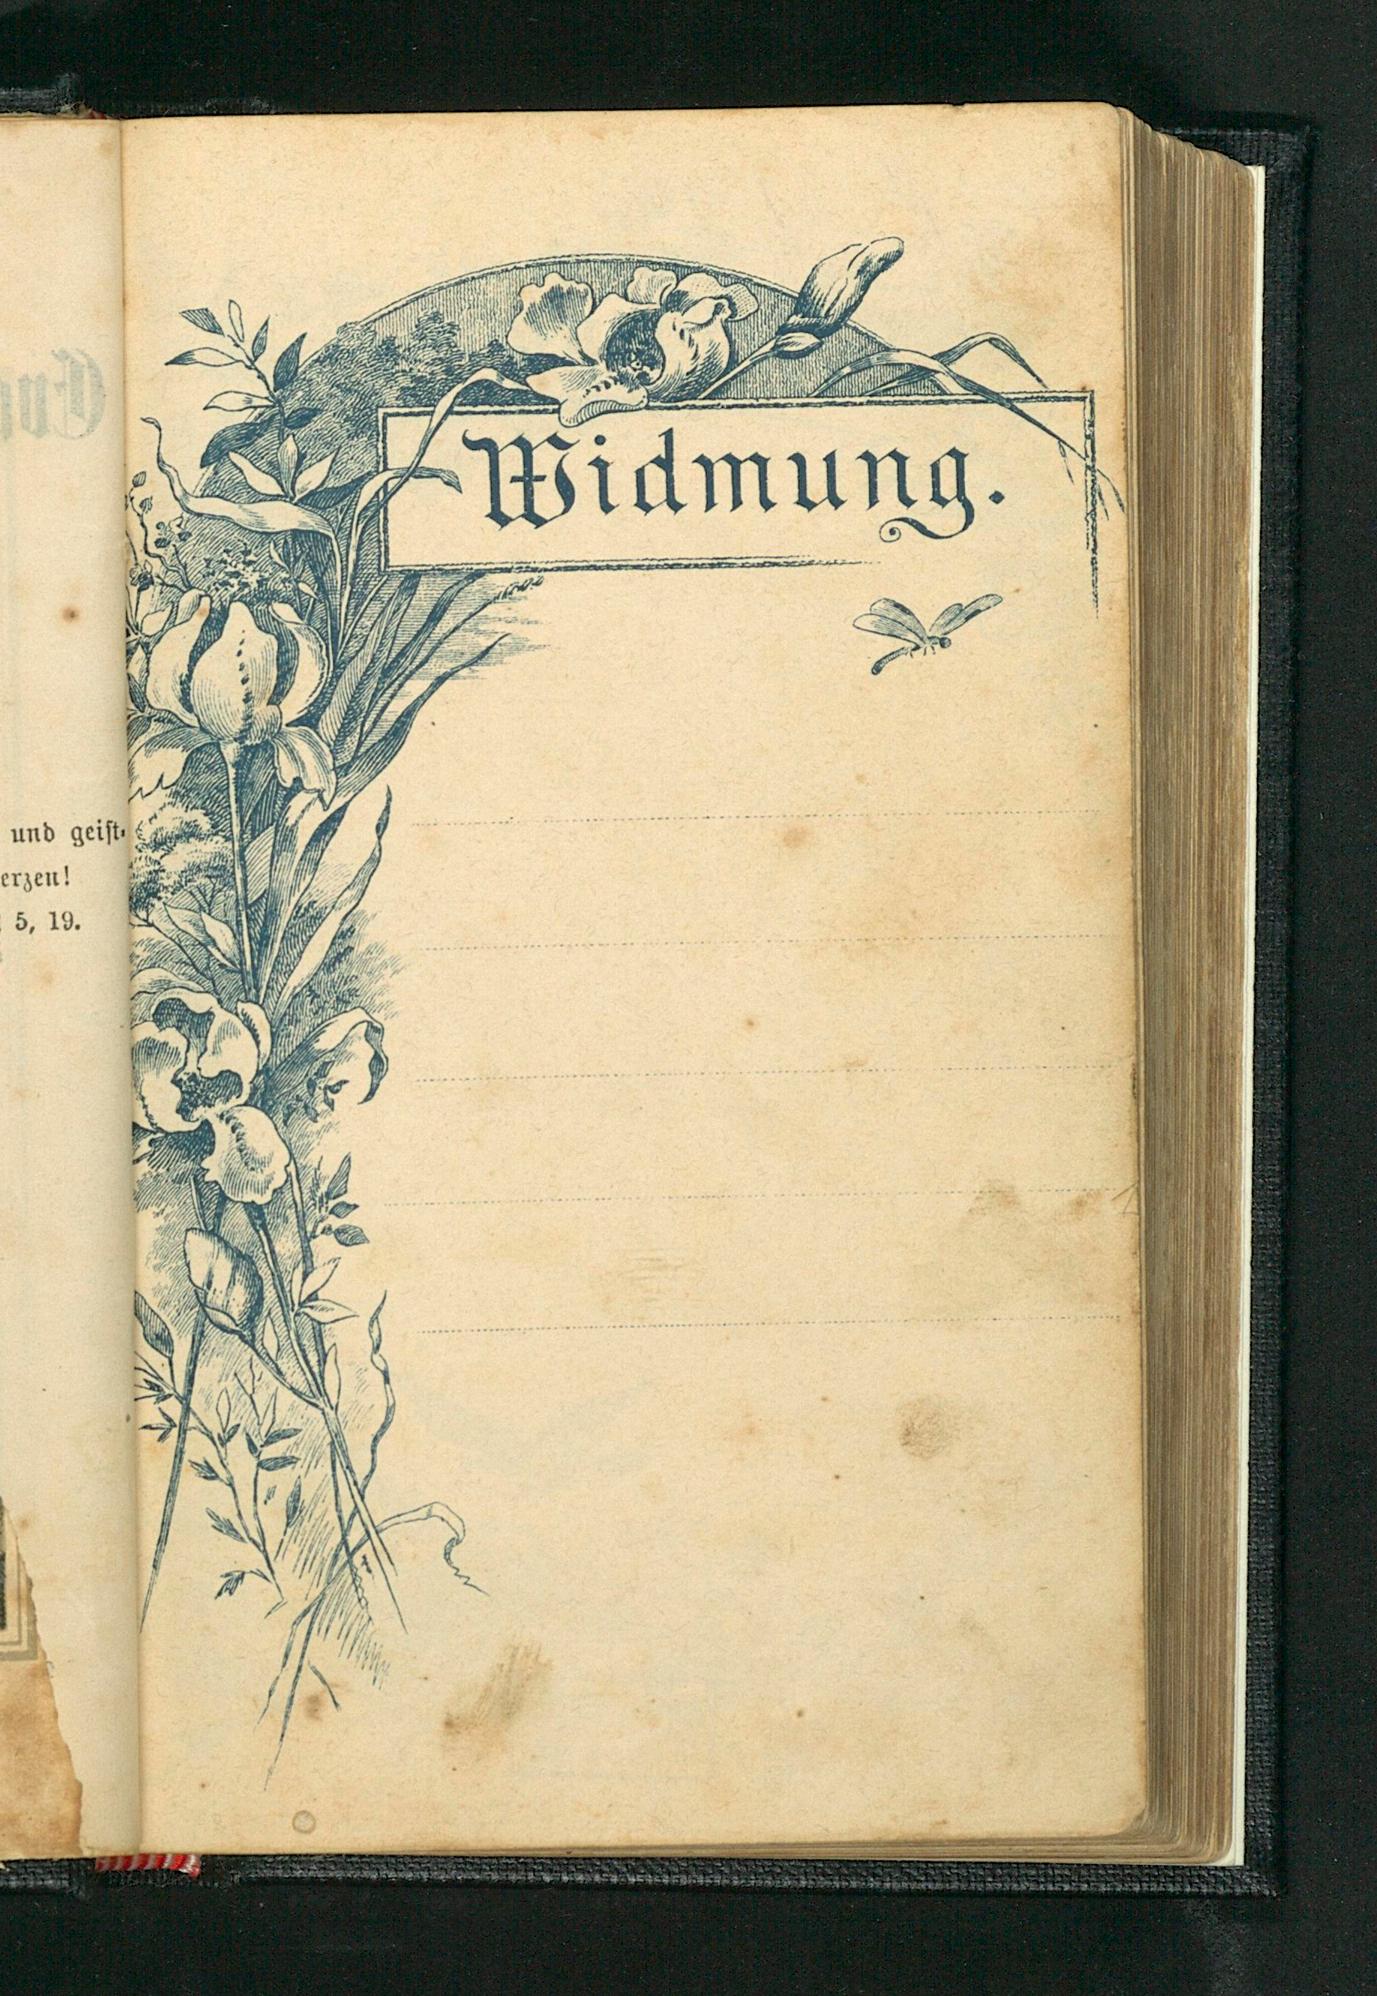 und geist-
erzen!
5, 19.
Widmung.